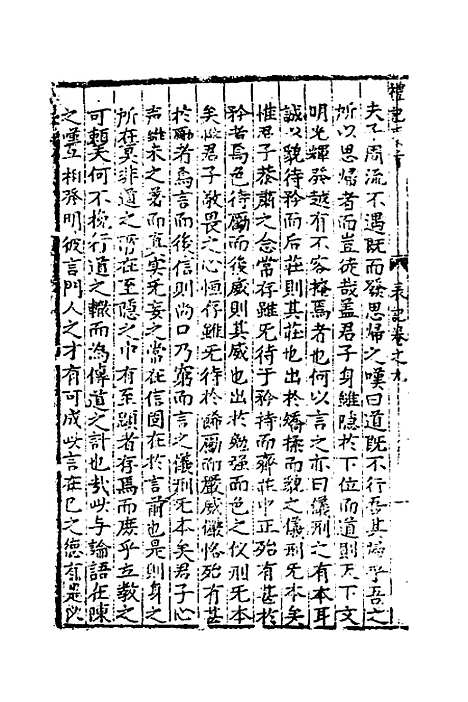 夫子周流不遇既而發思歸之嘆曰道既不行吾其歸乎吾之
所以思歸者而豈徒哉盖君子身雖隐於下位而道則天下文
明光輝發越有不容掩焉者也何以言之亦曰儀刑之有本耳
誠以貌待矜而后莊則其莊也出於矯揉而貌之儀刑旡本矣
惟君子恭肅之念常存雖旡待于矜持而齊莊中正殆有甚於
矜者焉色待厲而後威則其威也出於勉强而色之仪刑旡本
矣惟君子敬畏之心恒存雖旡待於餙厲而嚴威儼恪殆有甚
於厲者焉言而後信則尚口乃窮而言之儀刑旡本矣君子心
声雖未之著而真实旡妄之常在信固在於言前也是則身之
所在莫非道之所在至隐之中有至顕者存焉而庶乎立教之
可頼矣何不挽行道之轍而為傳道之計也哉此与論語在陳
之嘆互相發明彼言門人之才有可成此言在己之德有是以
禮記
表記卷之九